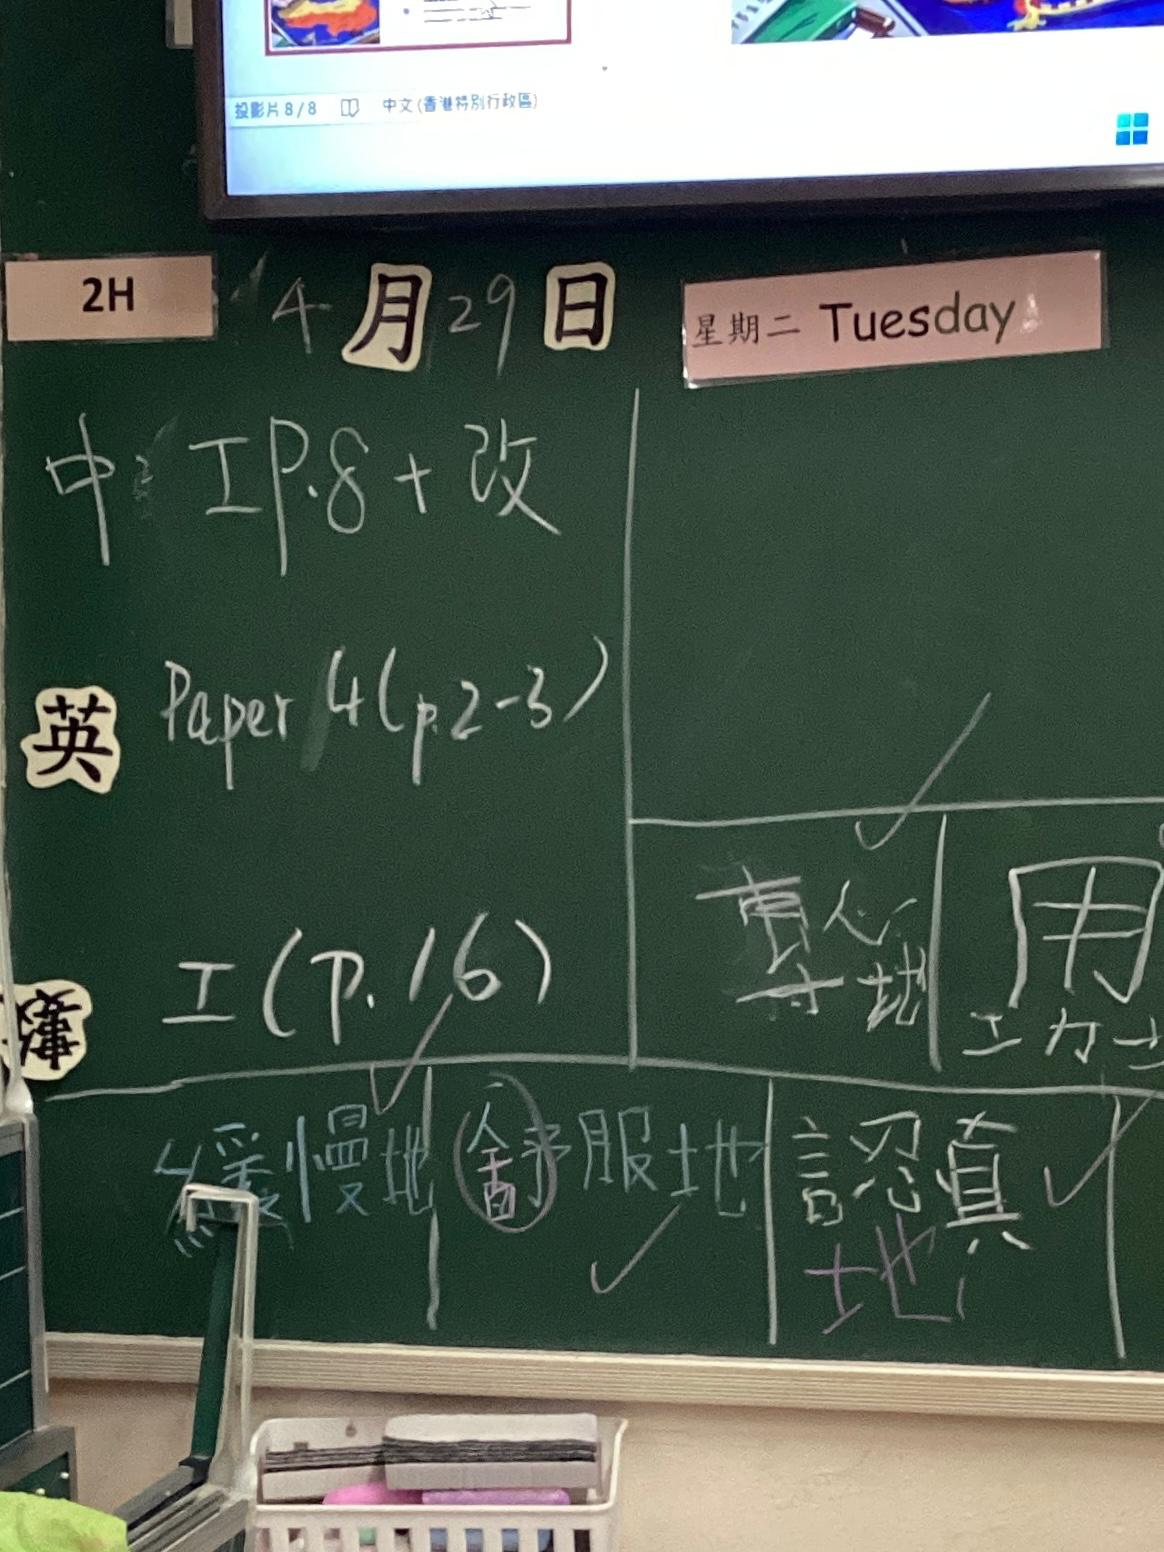 投影片 8/8 中文(香港特別行政區)
2H 4月29日 星期二 Tuesday
中: 工P.8 + 改
英 Paper 4 (p.2-3)
工 (P.16)
專心地
用
工力士
緩慢地 舒服地 認真地